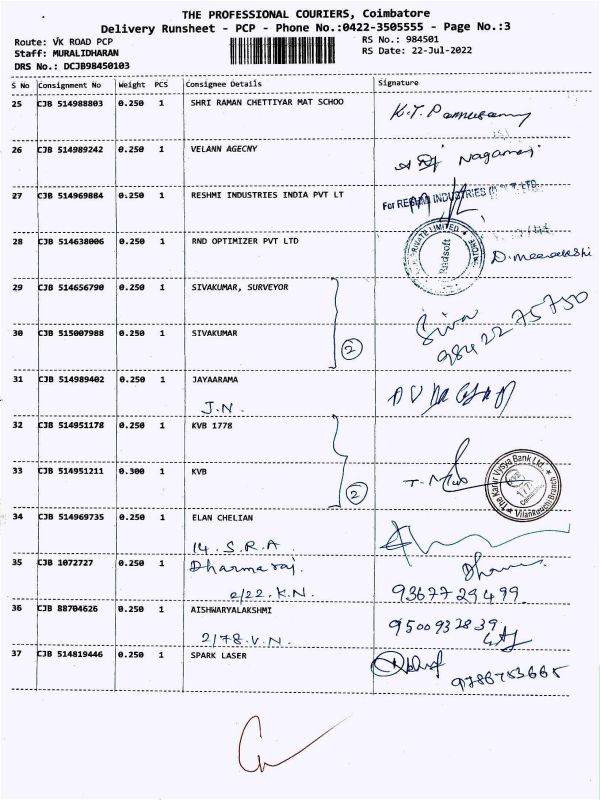 THE PROFESSIONAL COURIERS, Coimbatore
Delivery Runsheet - PCP - Phone No.:0422-3505555 - Page No.:3
Route: VK ROAD PCP
RS No.: 984501
Staff: MURALIDHARAN
RS Date: 22-Jul-2022
DRS No.: DCJB98450103
S No Consignment No Weight PCS Consignee Details Signature
25 CJB 514988803 0.250 1 SHRI RAMAN CHETTIYAR MAT SCHOO
26 CJB 514989242 0.250 1 VELANN AGECNY Nagamani
27 CJB 514969884 0.250 1 RESHMI INDUSTRIES INDIA PVT LT For RESHMI INDUSTRIES
28 CJB 514638006 0.250 1 RND OPTIMIZER PVT LTD PRIVATE LIMITED Rndsoft D. meenakshi
29 CJB 514656790 0.250 1 SIVAKUMAR, SURVEYOR Siva
30 CJB 515007988 0.250 1 SIVAKUMAR 2 98422 75750
31 CJB 514989402 0.250 1 JAYAARAMA
J.N.
32 CJB 514951178 0.250 1 KVB 1778
33 CJB 514951211 0.300 1 KVB 2 The Karur Vysya Bank Ltd. Vilankurichi Branch
34 CJB 514969735 0.250 1 ELAN CHELIAN
14. S.R.A
35 CJB 1072727 0.250 1 Dharmaraj.
2/22. K.N. 9367729499
36 CJB 88704626 0.250 1 AISHWARYALAKSHMI 9500932839
2/78. V.N.
37 CJB 514819446 0.250 1 SPARK LASER 9786753665